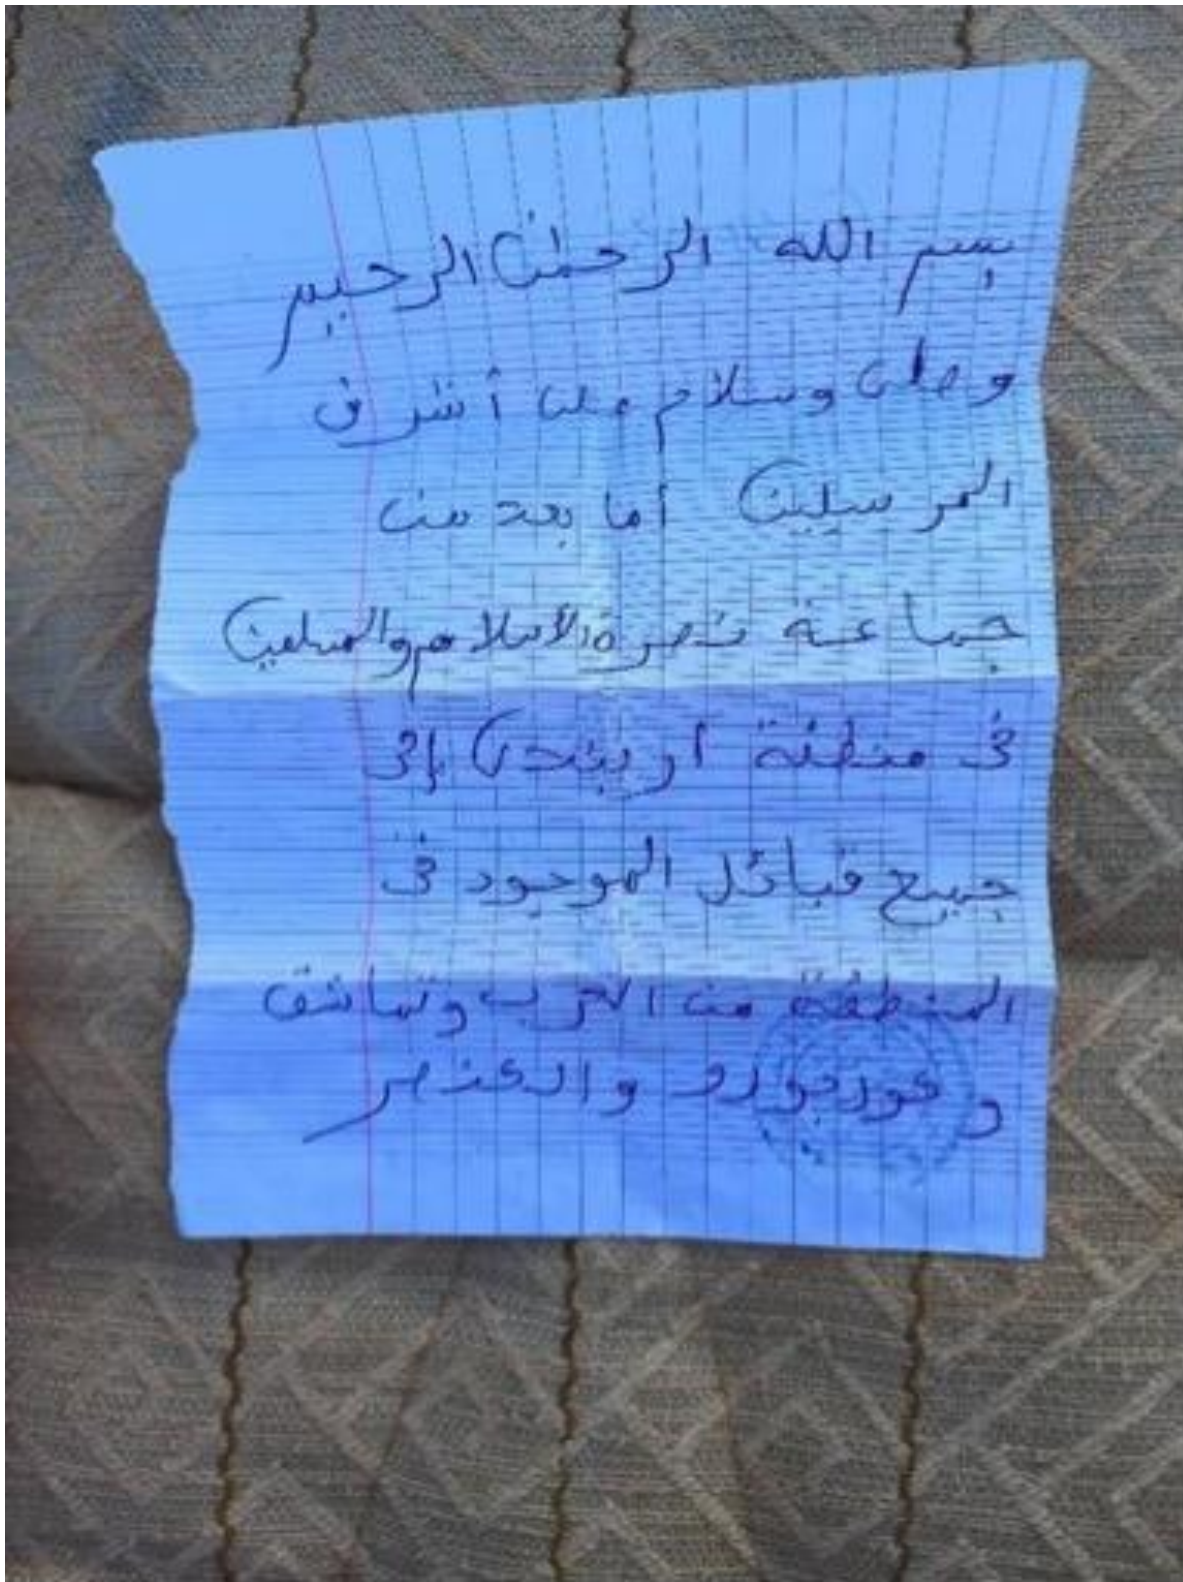 بسم الله الرحمن الرحيم
وصلى وسلام على أشرف
المرسيلين أما بعد من
جماعة نصرة الأسلام والمسلمين
في منطقة اربندى إلى
جميع قبائل الموجود في
المنطقة من العرب وتماشق
والعنصر